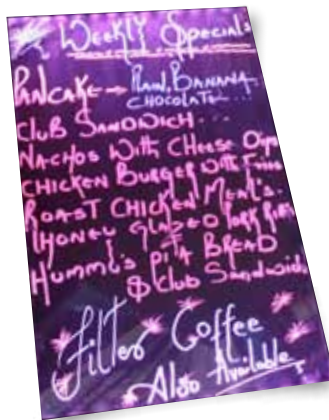 Weekly Specials
Pancake → Plain, Banana,
Chocolate...
Club Sandwich...
Nachos With Cheese Dips
Chicken Burger With Fries
Roast Chicken Meal's.
Honey Glazed Pork Ribs
Hummus Pita Bread
& Club Sandwich
Filter Coffee
Also Available